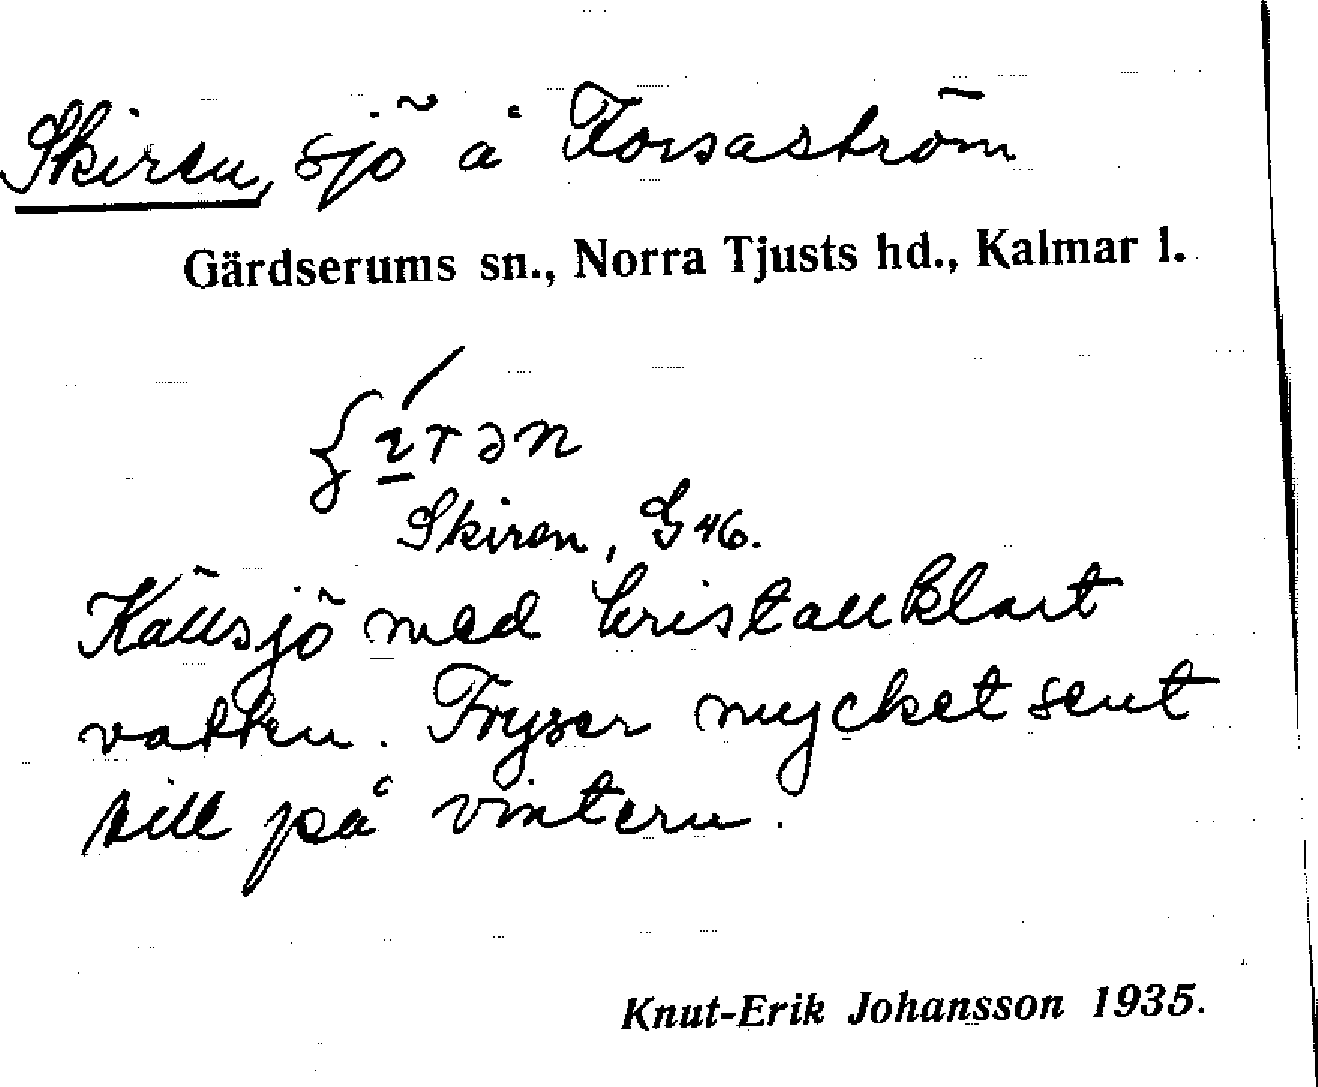 Skiren, sjö å Forsaström
Gärdserums sn., Norra Tjusts hd., Kalmar l.
Skiren, G 46.
Källsjö med kristallklart
vatten. Fryser mycket sent
till på vintern.
Knut-Erik Johansson 1935.